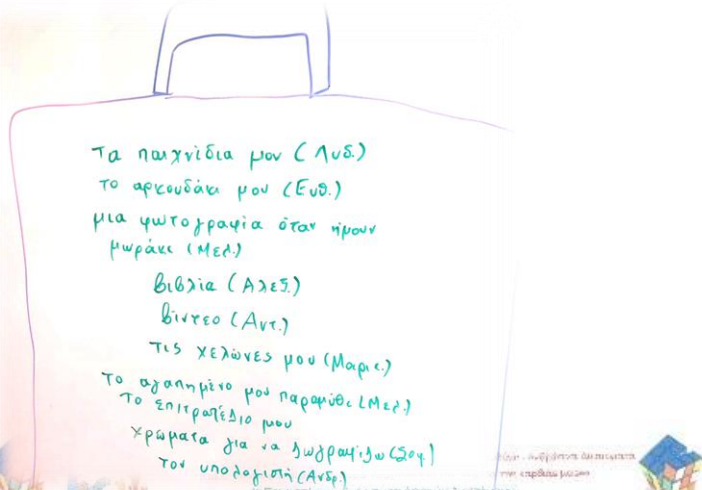 Τα παιχνίδια μου (Λυδ.)
το αρκουδάκι μου (Ευθ.)
μια φωτογραφία όταν ήμουν
μωράκι (Μελ.)
βιβλία (Αλεξ.)
βίντεο (Αντ.)
τις χελώνες μου (Μαρι.)
το αγαπημένο μου παραμύθι (Μελ.)
το επιτραπέζιο μου
χρώματα για να ζωγραφίζω (Σοφ)
τον υπολογιστή (Ανδρ.)